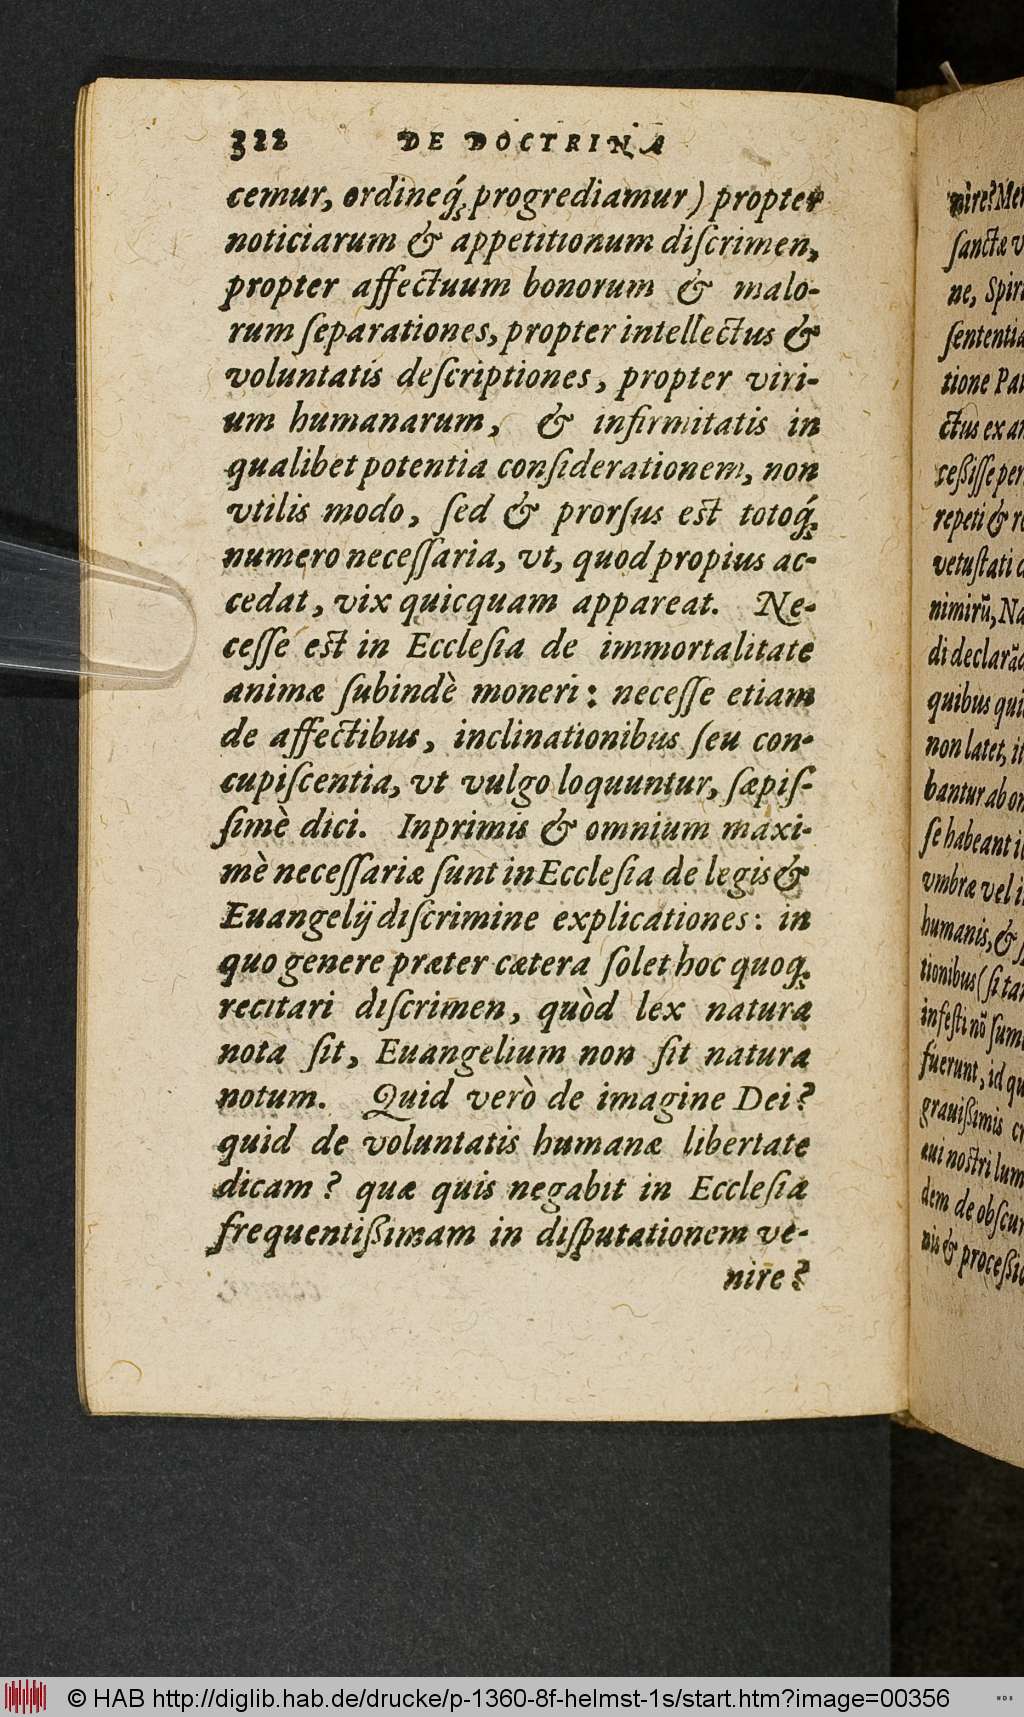 322 DE DOCTRINA
cemur, ordineq́; progrediamur) propter
noticiarum & appetitionum diſcrimen,
propter affectuum bonorum & malo-
rum ſeparationes, propter intellectus &
voluntatis deſcriptiones, propter viri-
um humanarum, & infirmitatis in
qualibet potentia conſiderationem, non
vtilis modo, ſed & prorſus est totoq́;
numero neceſſaria, vt, quod propius ac-
cedat, vix quicquam appareat. Ne-
ceſſe est in Eccleſia de immortalitate
animæ ſubindè moneri: neceſſe etiam
de affectibus, inclinationibus ſeu con-
cupiſcentia, vt vulgo loquuntur, ſæpiſ-
ſimè dici. Inprimis & omnium maxi-
mè neceſſariæ ſunt in Eccleſia de legis &
Euangelij diſcrimine explicationes: in
quo genere præter cætera ſolet hoc quoq;
recitari diſcrimen, quòd lex natura
nota ſit, Euangelium non ſit natura
notum. Quid verò de imagine Dei?
quid de voluntatis humanæ libertate
dicam? quæ quis negabit in Eccleſia
frequentißimam in diſputationem ve-
nire?
nire? Me
ſanctæ v
ne, Spiri
ſententia
tione Pat
ctus ex an
ceßiſſe per
repeti & re
vetuſtati
nimirũ, Na
di declarãd
quibus qui
non latet, it
bantur ab on
ſe habeant i
vmbræ vel i
humanis, &
tionibus (ſi tan
infeſti nõ ſum
fuerunt, id qu
grauißimis cr
aui noſtri lum
dem de obſcur
mis & proceßio
© HAB http://diglib.hab.de/drucke/p-1360-8f-helmst-1s/start.htm?image=00356